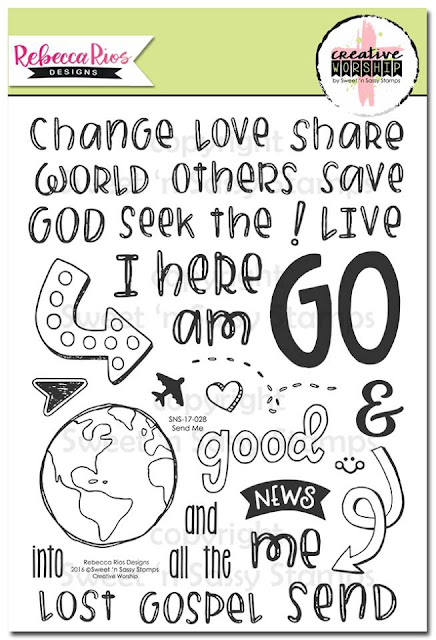 Rebecca Rios
DESIGNS
creative
WORSHIP
by Sweet 'n Sassy Stamps
change love share
WORLD others save
GOD seek the ! LIVE
I here
am
GO
SNS-17-028
Send Me
&
good
NEWS
and
into
all the
me
Rebecca Rios Designs
2016 ©Sweet 'n Sassy Stamps
Creative Worship
LOST GOSPEL send
copyright
Sweet 'n Sassy Stamps
copyright
Sweet 'n Sassy Stamps
copyright
Sweet 'n Sassy Stamps
copyright
Sweet 'n Sassy Stamps